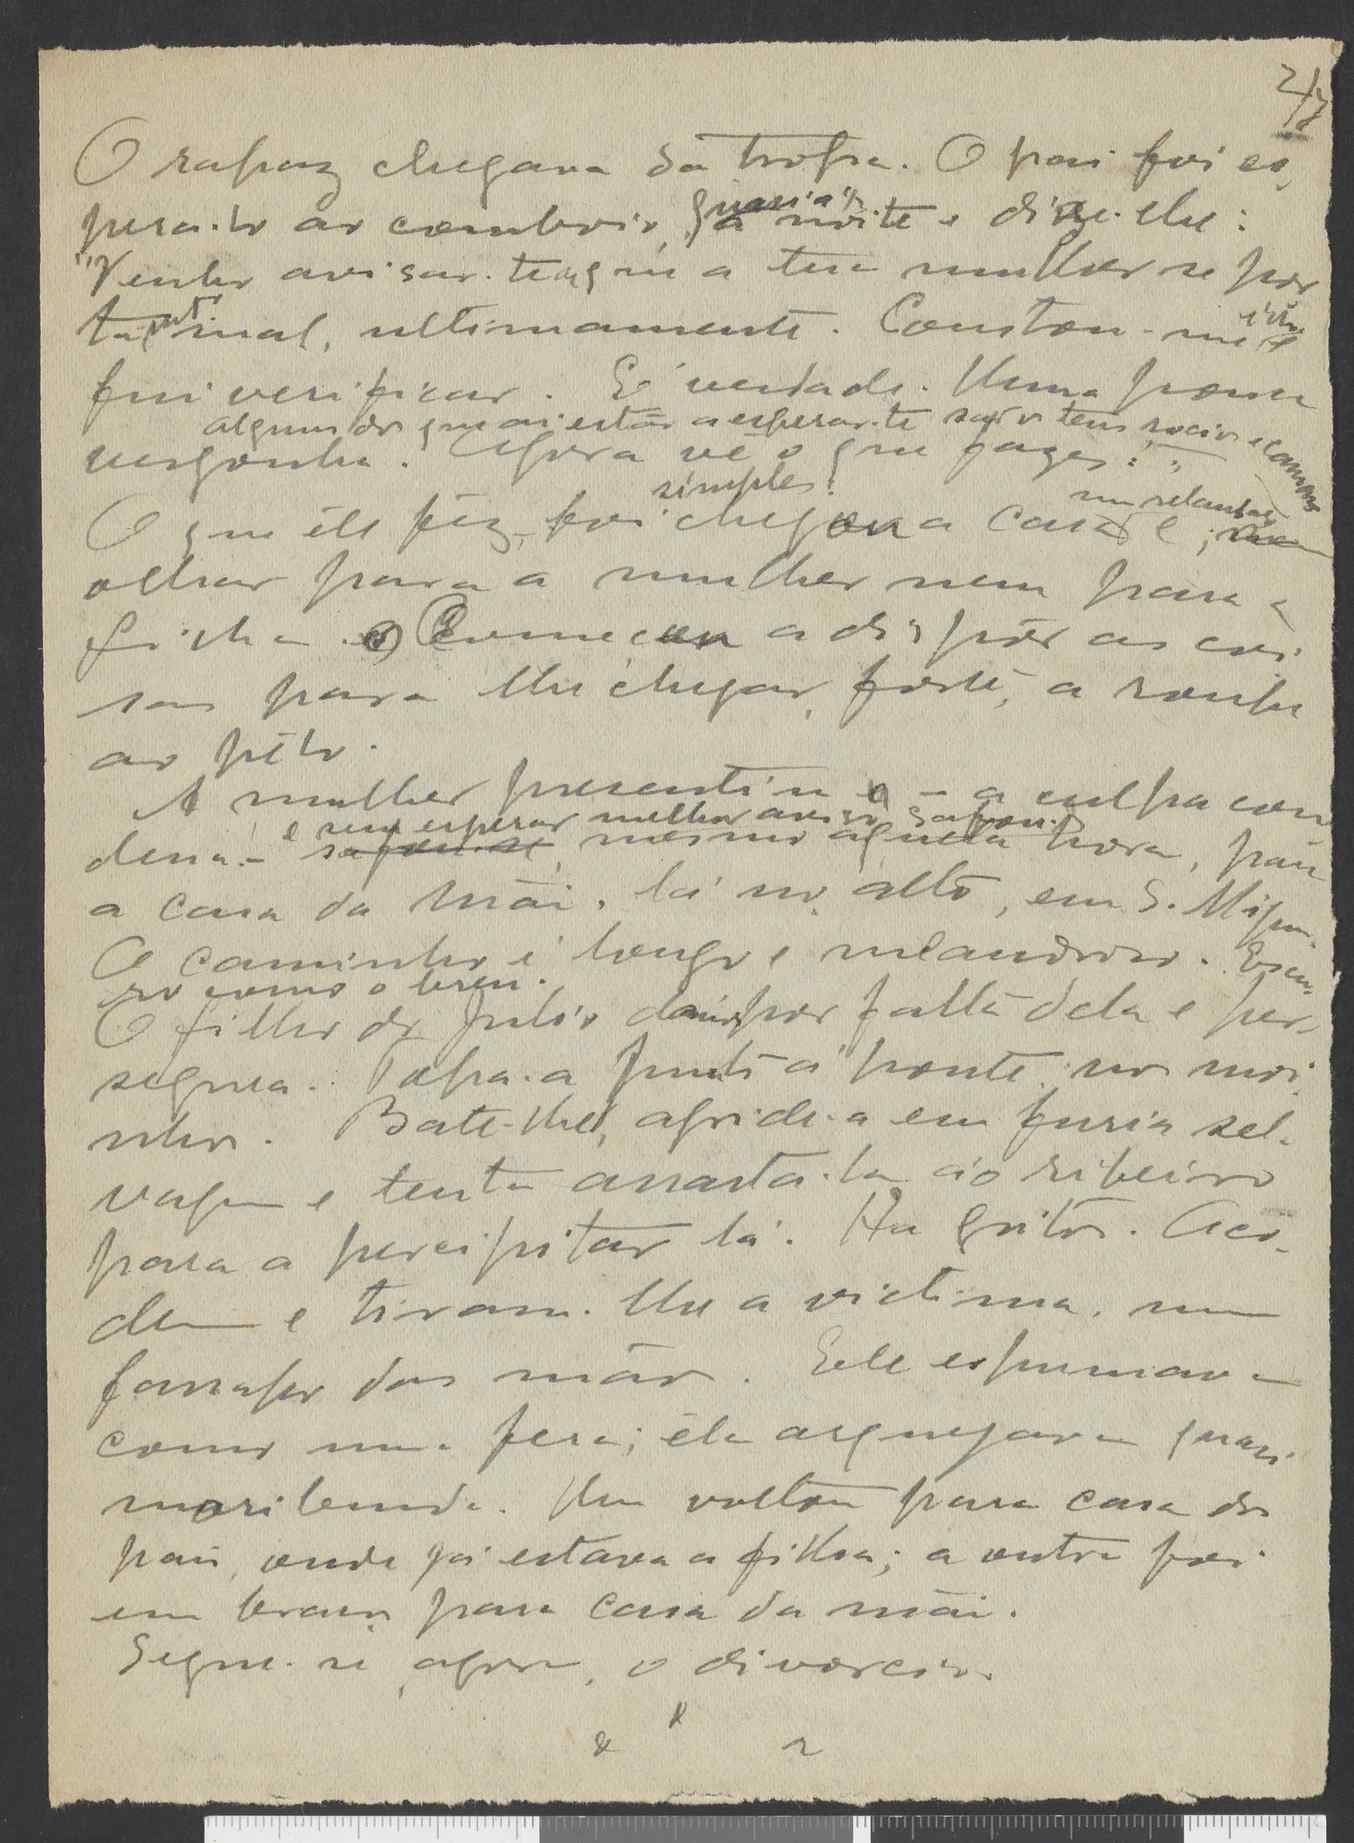 2/7
O rapaz chegava da tropa. O pai foi es-
pera-lo ao comboio, quasi à noite e disse-lhe:
"Venho avisar-te que a tua mulher se por
ta mal, ultimamente. Constou-me isto e
fui verificar. É verdade. Uma pouca
algum do que ai está a esperar-te ser o teu socio e
vergonha. Agora vê o que fazes!"
simples:
O que êle fêz, foi chegou a casa e, num relance
olhar para a mulher nem para a
filha. Começou a dispôr as coi
sas para lhe chegar, forte, a roupa
ao pêlo.
A mulher presentiu - a culpa con
dena - e sem esperar melhor aviso safou-se
safou-se, mesmo aquela hora, para
a casa da Mãi, lá no alto, em S. Migu.
O caminho é longo e meandroso. Escu-
ro como o breu.
O filho do Julio dá por falta dela e per-
segue-a. Topa-a junto á ponte no moi
nho. Bate-lhe, agride-a em furia sel-
vagem e tenta arrasta-la ao ribeiro
para a percipitar lá. Ha gritos. Aco-
dem e tiram-lhe a victima, num
farrapo das mãos. Êle espumava
como uma fera; éla arquejava quasi
moribunda. Um voltou para casa do
pai, onde já estava a filha; a outra foi
em braços para casa da mãi.
Segue-se, agora, o divorcio.